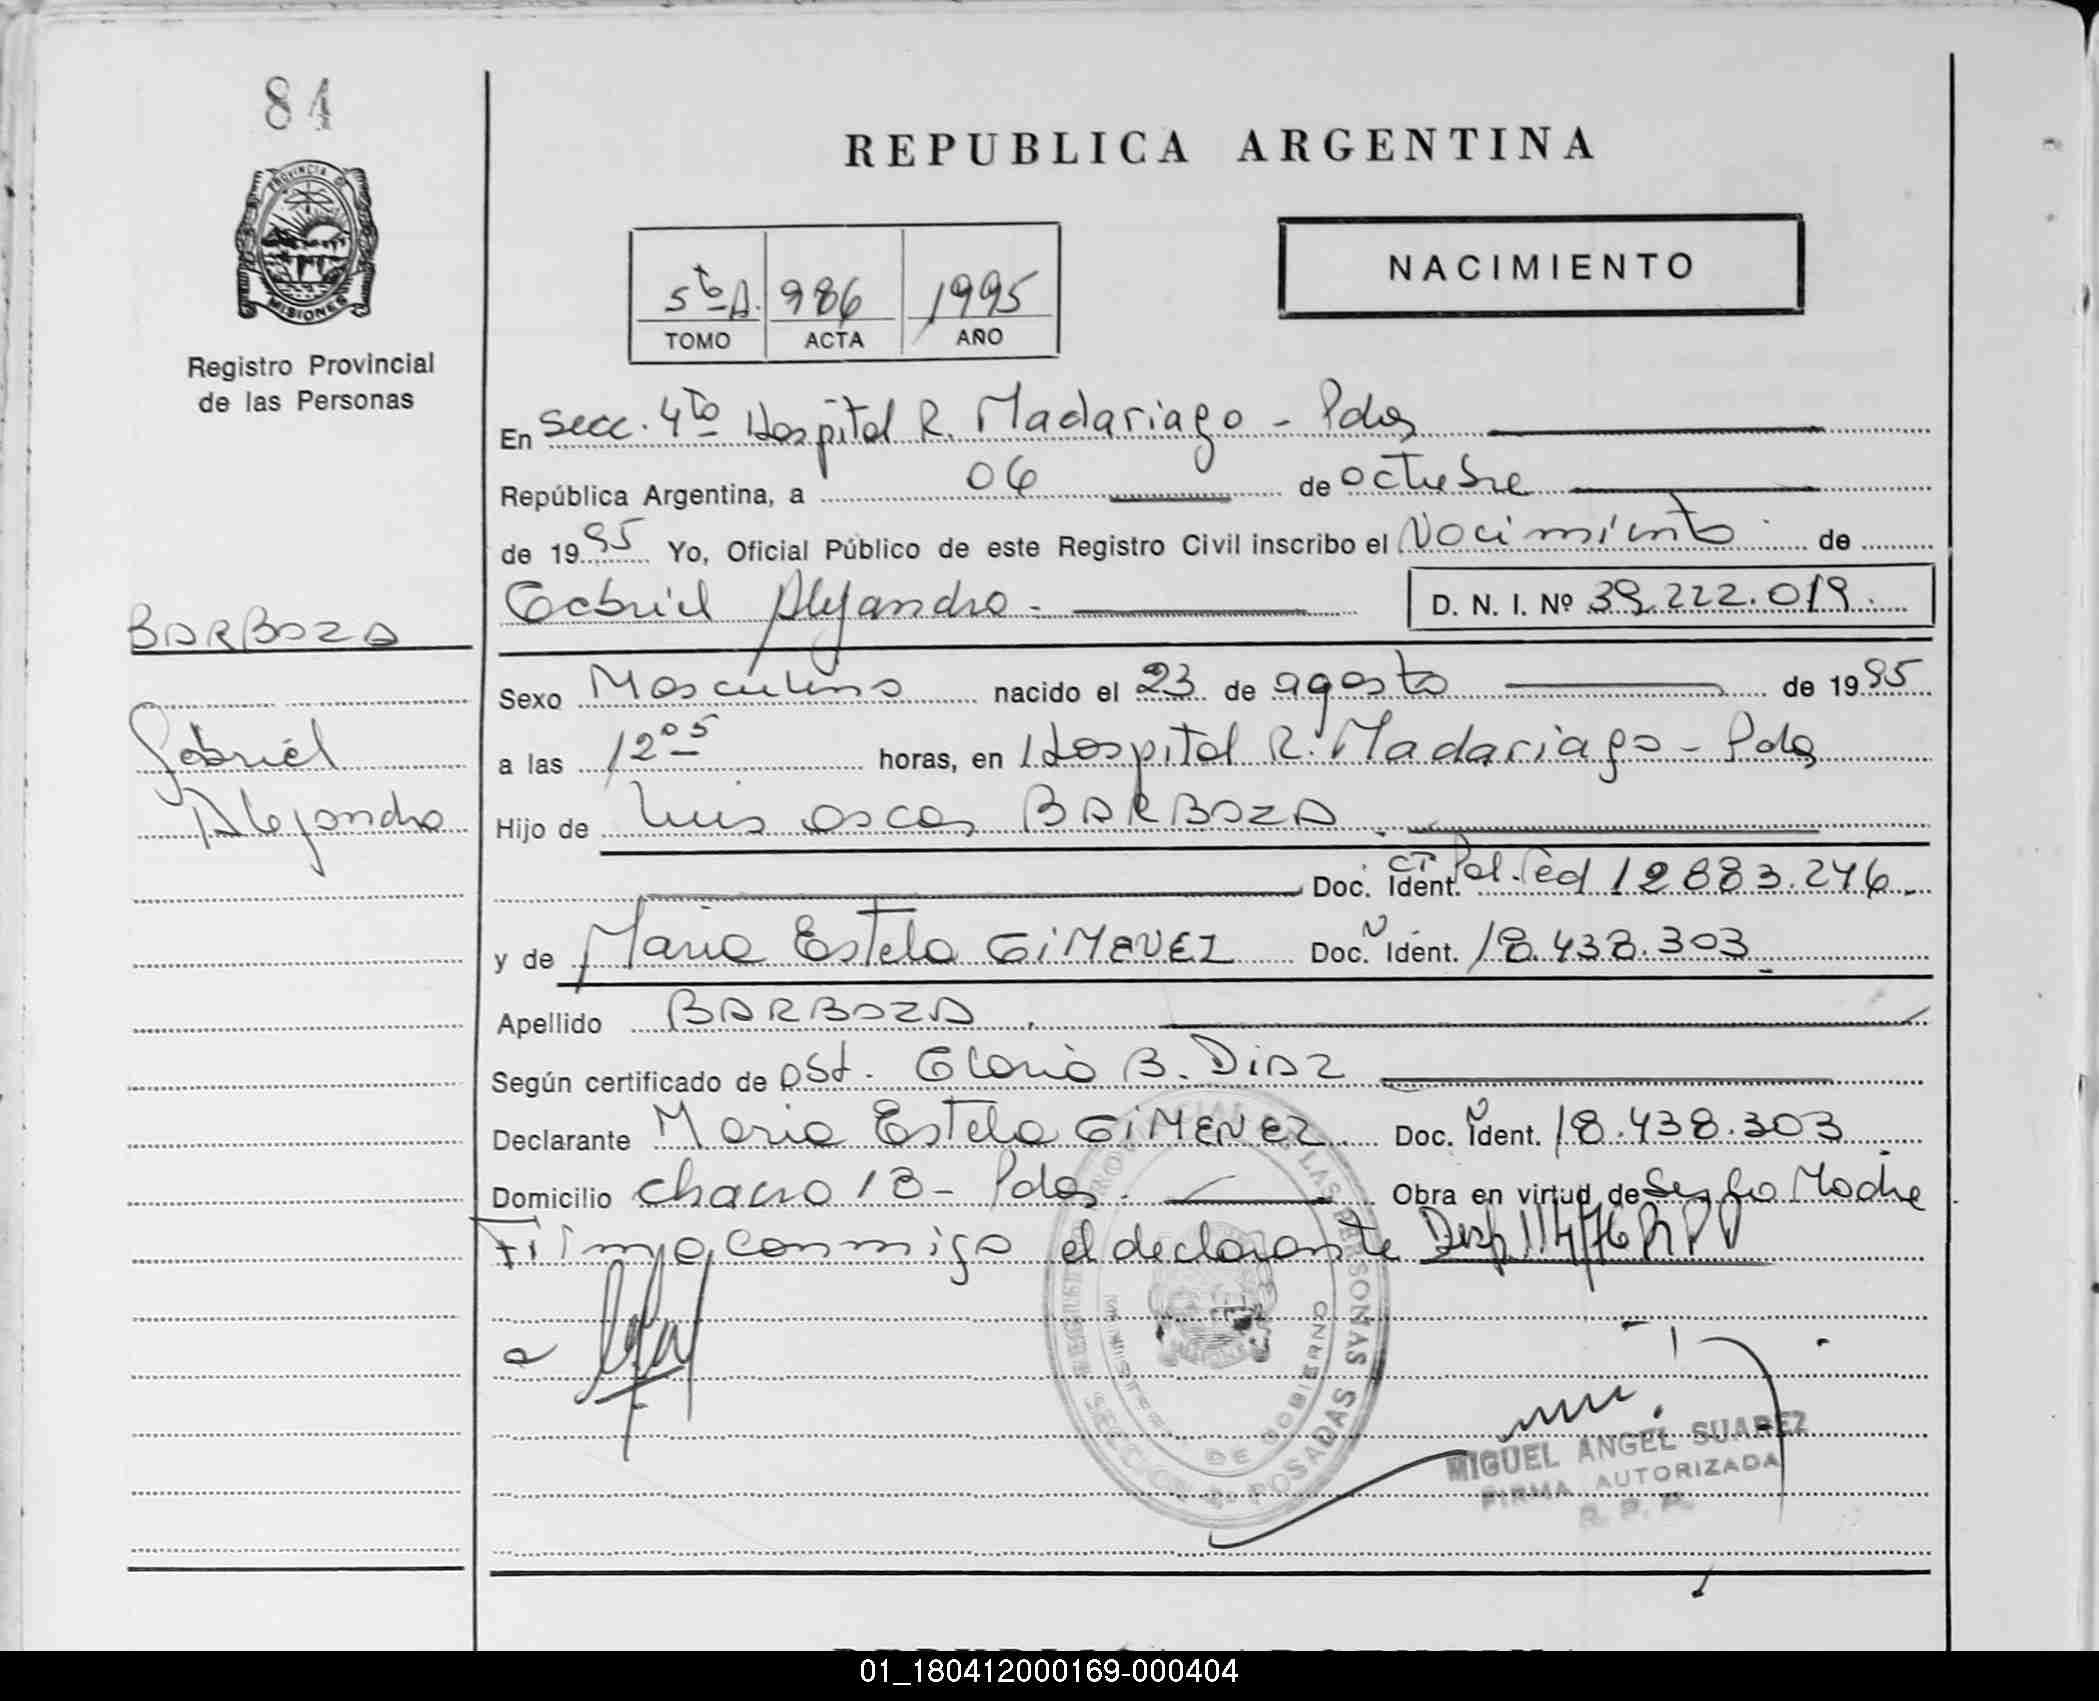 84
PROVINCIA DE
MISIONES
Registro Provincial
de las Personas
BARBOZA
Gabriel
Alejandro
REPUBLICA ARGENTINA
5to A. 986 1995
TOMO ACTA AÑO
NACIMIENTO
En Secc. 4to Hospital R. Madariaga - Pdas
República Argentina, a 06 de octubre
de 1995 Yo, Oficial Público de este Registro Civil inscribo el Nacimiento de
Gabriel Alejandro.- D. N. I. Nº 39.222.019.
Sexo Masculino nacido el 23 de agosto de 1995
a las 12 05 horas, en Hospital R. Madariaga - Pdas
Hijo de Luis oscar BARBOZA.
Doc. Ident. CI Pol. Fed 12883.276.
y de Maria Estela GIMENEZ Doc. Ident. 18.438.303
Apellido BARBOZA.
Según certificado de obst. Gloria B. Diaz
Declarante Maria Estela GIMENEZ Doc. Ident. 18.438.303
Domicilio chacra 18 - Pdas. Obra en virtud de Ser la Madre
Firma conmigo el declarante Disp 114/76 RPP
MINISTERIO DE GOBIERNO
SECCION 4º POSADAS
MIGUEL ANGEL SUAREZ
FIRMA AUTORIZADA
R. P. P.
01_180412000169-000404